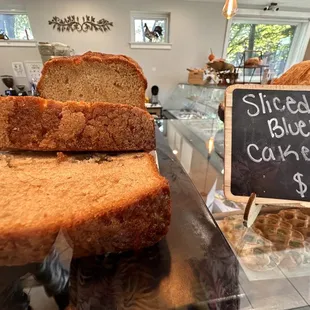 Sliced
Blue
cake
$